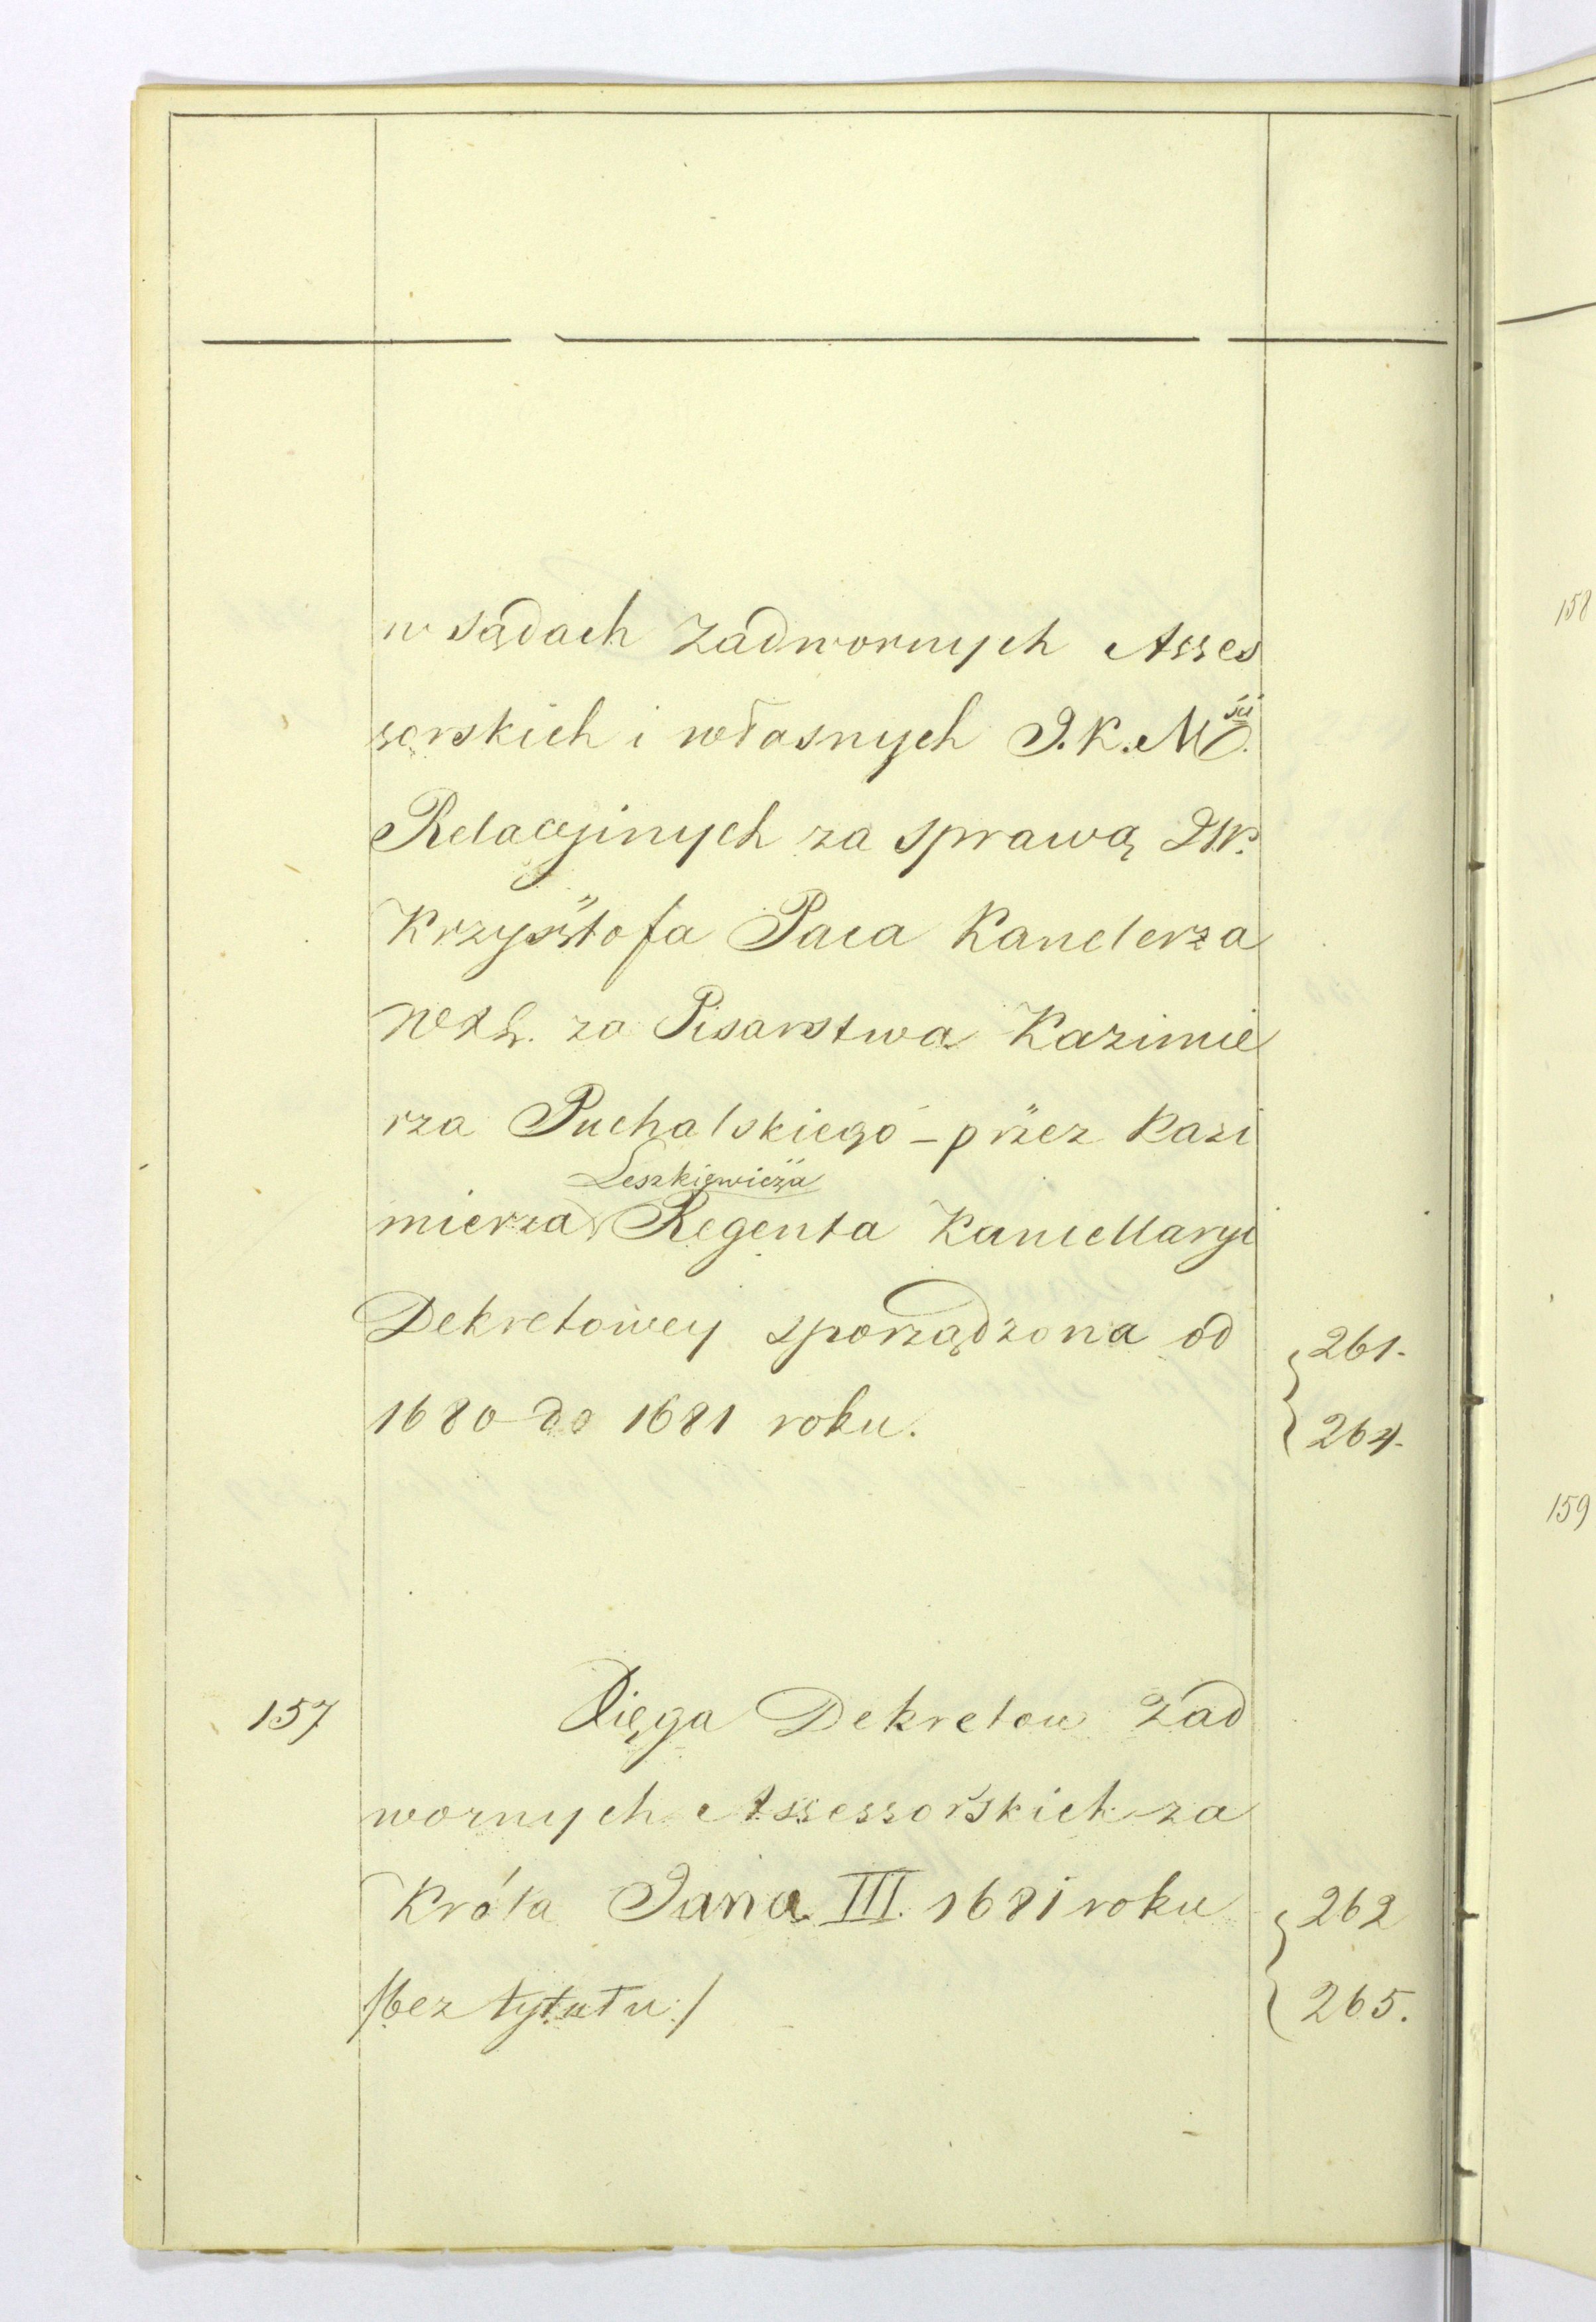 w sądach Zadwornych Asses
sorskich i własnych J. K. Mści.
Relacyjnych za sprawą JW.
Krzysztofa Paca Kanclerza
WXL. za Pisarstwa Kazimie
rza Puchalskiego – przez Kazi
Leszkiewicza
mierza Regenta Kancellaryi
Dekretowey sporządzona od
261.
1680 do 1681 roku.
264.
157
Xięga Dekretow Zad
wornych Assessorskich za
Króla Jana III. 1681 roku
262
/:bez tytułu:/
265.
158
159